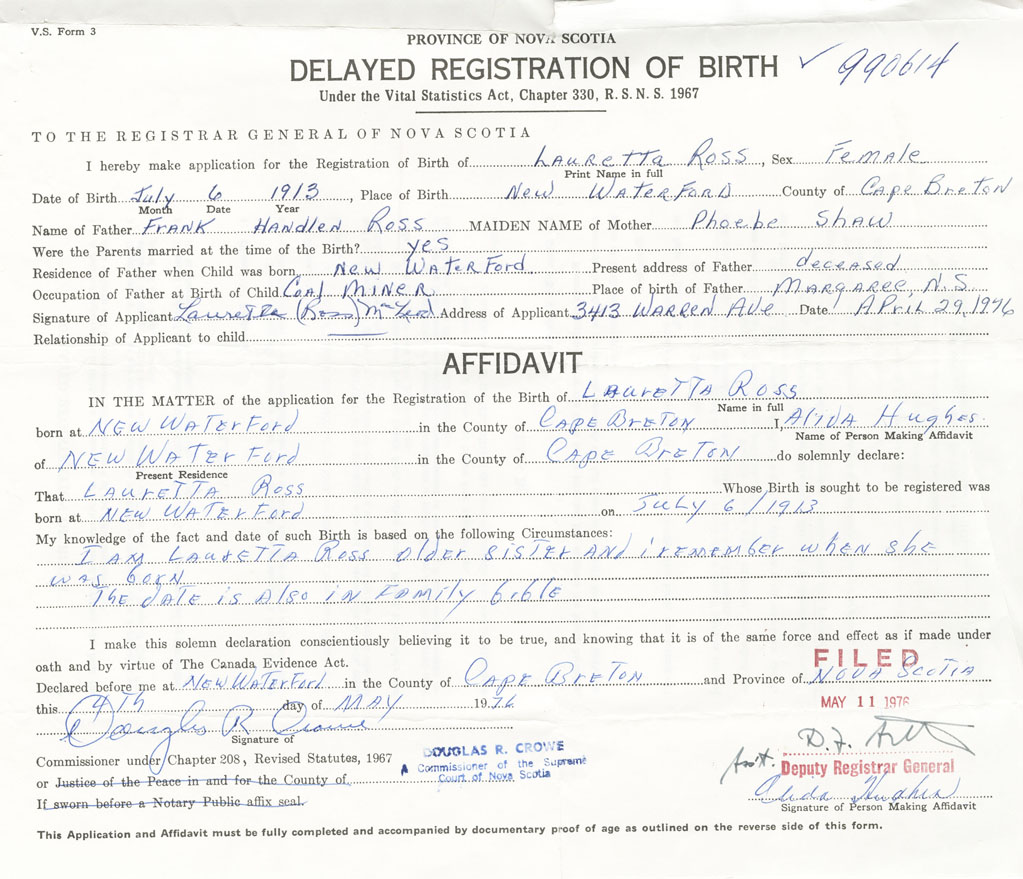 V.S. Form 3
PROVINCE OF NOVA SCOTIA
DELAYED REGISTRATION OF BIRTH ✓ 990614
Under the Vital Statistics Act, Chapter 330, R.S.N.S. 1967
TO THE REGISTRAR GENERAL OF NOVA SCOTIA
I hereby make application for the Registration of Birth of Lauretta Ross, Sex Female
Print Name in full
Date of Birth July 6 1913, Place of Birth New Waterford County of Cape Breton
Month Date Year
Name of Father Frank Handlen Ross MAIDEN NAME of Mother Phoebe Shaw
Were the Parents married at the time of the Birth? yes
Residence of Father when Child was born New Waterford Present address of Father deceased
Occupation of Father at Birth of Child Coal Miner Place of birth of Father Margaree, N.S.
Signature of Applicant Lauretta (Ross) Address of Applicant 3413 Warren Ave Date April 29, 1976
Relationship of Applicant to child
AFFIDAVIT
IN THE MATTER of the application for the Registration of the Birth of Lauretta Ross
Name in full
born at New Waterford in the County of Cape Breton I, Alida Hughes
Name of Person Making Affidavit
of New Waterford in the County of Cape Breton do solemnly declare:
Present Residence
That Lauretta Ross Whose Birth is sought to be registered was
born at New Waterford on July 6/1913
My knowledge of the fact and date of such Birth is based on the following Circumstances:
I am Lauretta Ross older sister and i remember when she
was born
The date is also in Family bible
I make this solemn declaration conscientiously believing it to be true, and knowing that it is of the same force and effect as if made under
oath and by virtue of The Canada Evidence Act.
FILED
Declared before me at New Waterford in the County of Cape Breton and Province of Nova Scotia
this 4th day of May 1976
MAY 11 1976
Douglas R Crowe
Signature of
Commissioner under Chapter 208, Revised Statutes, 1967
DOUGLAS R. CROWE
A Commissioner of the Supreme
Court of Nova Scotia
or Justice of the Peace in and for the County of
If sworn before a Notary Public affix seal.
Asst. Deputy Registrar General
Alida Hughes
Signature of Person Making Affidavit
This Application and Affidavit must be fully completed and accompanied by documentary proof of age as outlined on the reverse side of this form.